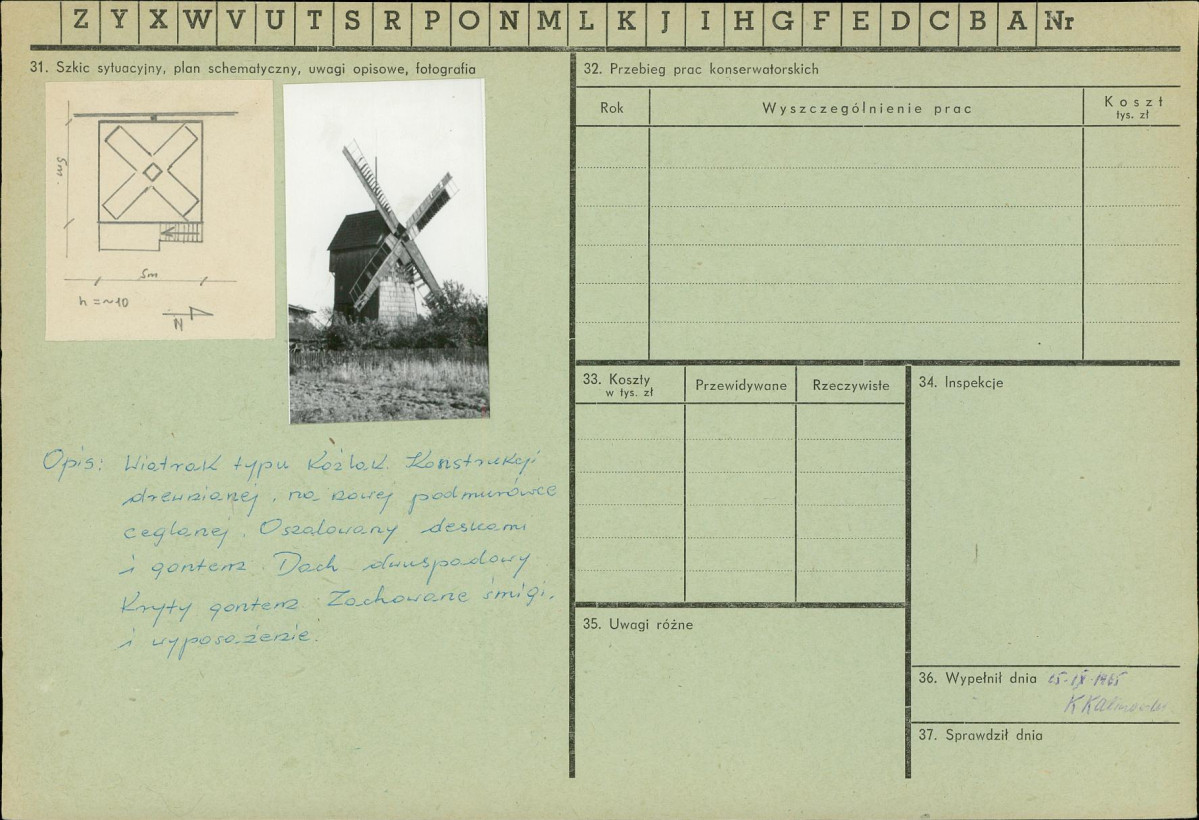 Z Y X W V U T S R P O N M L K J I H G F E D C B A Nr
31. Szkic sytuacyjny, plan schematyczny, uwagi opisowe, fotografia
5m.
5m
h = ~10
N
Opis: Wiatrak typu Koźlak. Konstrukcji
drewnianej, na nowej podmurówce
ceglanej. Oszalowany deskami
i gontem. Dach dwuspadowy
Kryty gontem. Zachowane śmigi,
i wyposażenie.
32. Przebieg prac konserwatorskich
Rok
Wyszczególnienie prac
Koszt
tys. zł
33. Koszty
w tys. zł
Przewidywane
Rzeczywiste
34. Inspekcje
35. Uwagi różne
36. Wypełnił dnia 25-IX-1965
37. Sprawdził dnia